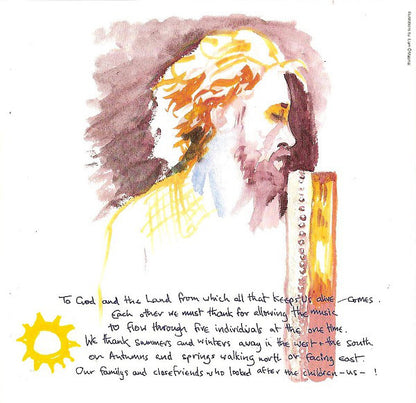 To God and the Land from which all that keeps us alive — comes.
Each other we must thank for allowing the music
to flow through five individuals at the one time.
We thank summers and winters away in the west + the south
on Autumns and springs walking north or facing east.
Our familys and closefriends who looked after the children - us - !